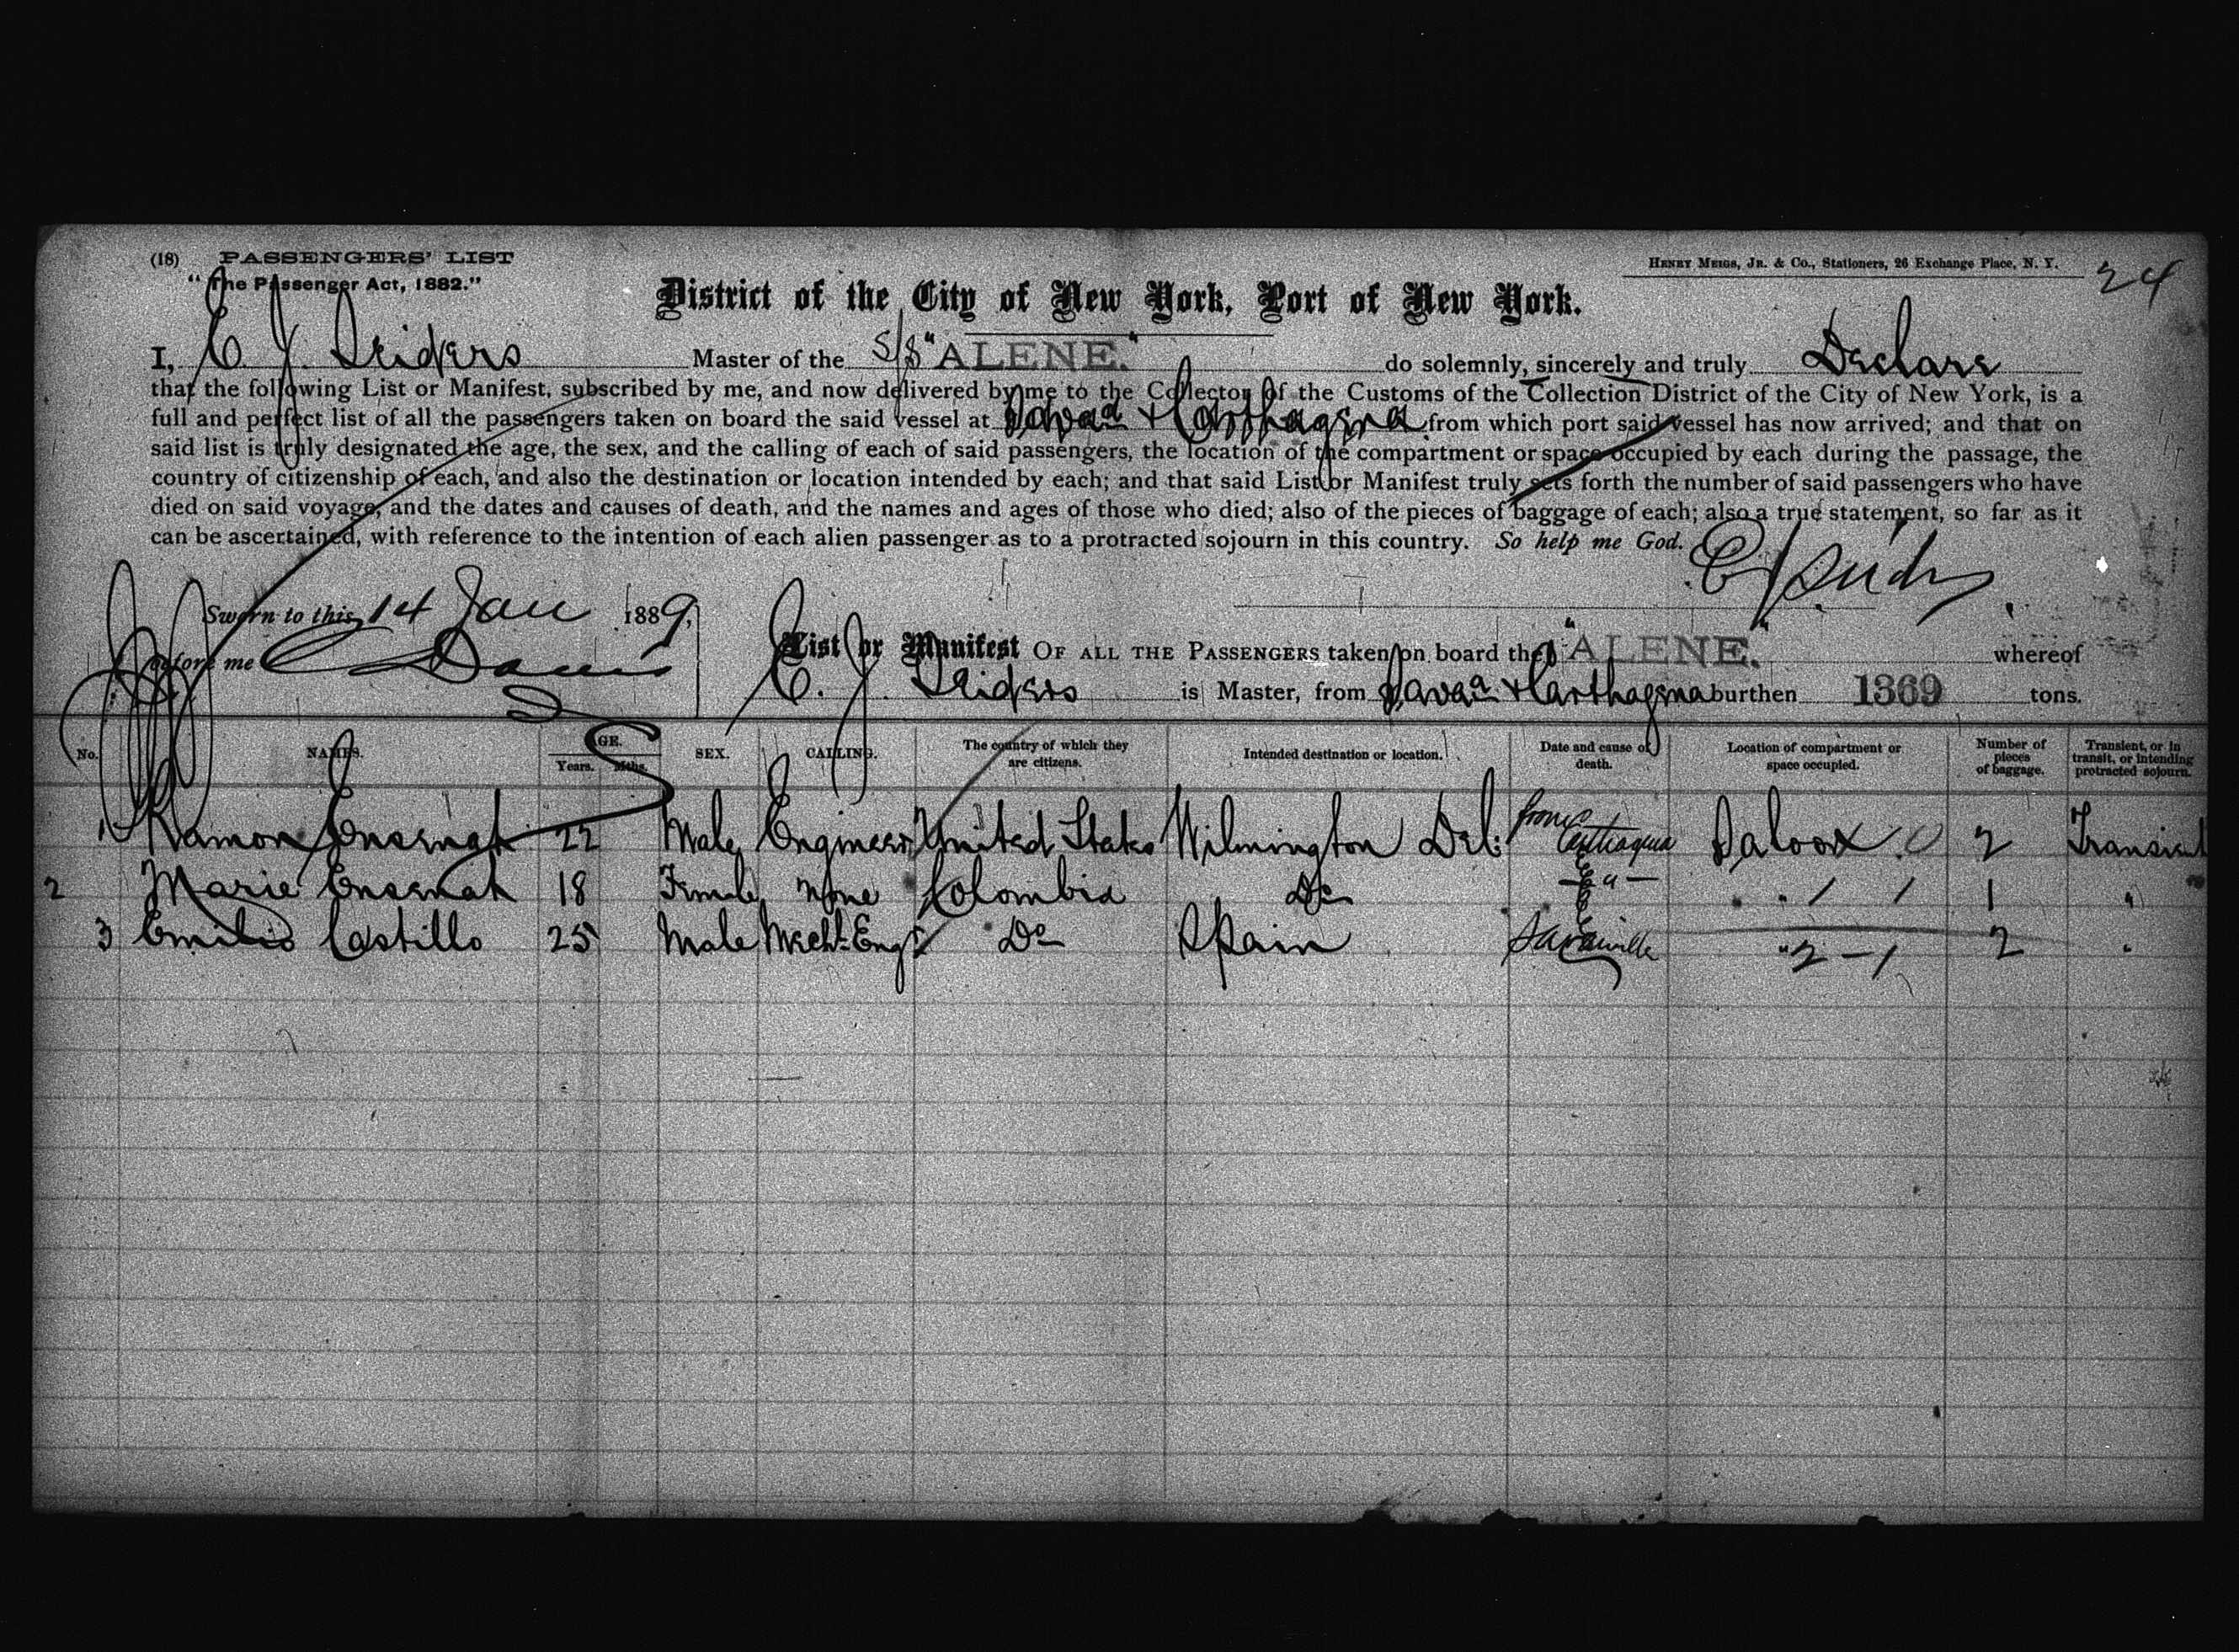 (18) PASSENGERS' LIST
"The Passenger Act, 1882."
HENRY MEIGS, JR. & CO., Stationers, 26 Exchange Place, N. Y.
24
District of the City of New York, Port of New York.
I, C. J. Seiders Master of the S/S "ALENE." do solemnly, sincerely and truly Declare
that the following List or Manifest, subscribed by me, and now delivered by me to the Collector of the Customs of the Collection District of the City of New York, is a
full and perfect list of all the passengers taken on board the said vessel at Sava^a + Carthagena from which port said vessel has now arrived; and that on
said list is truly designated the age, the sex, and the calling of each of said passengers, the location of the compartment or space occupied by each during the passage, the
country of citizenship of each, and also the destination or location intended by each; and that said List or Manifest truly sets forth the number of said passengers who have
died on said voyage, and the dates and causes of death, and the names and ages of those who died; also of the pieces of baggage of each; also a true statement, so far as it
can be ascertained, with reference to the intention of each alien passenger as to a protracted sojourn in this country. So help me God.
Sworn to this 14 Jan 1889,
before me
List or Manifest OF ALL THE PASSENGERS taken on board the "ALENE." whereof
C. J. Seiders is Master, from Sava^a + Carthagena burthen 1369 tons.
No. NAMES. AGE. Years. Mths. SEX. CALLING. The country of which they are citizens. Intended destination or location. Date and cause of death. Location of compartment or space occupied. Number of pieces of baggage. Transient, or in transit, or intending protracted sojourn.
1 Ramon Ensenat 22 Male Engineer United States Wilmington Del: from Carthagena Saloon 2 Transient
2 Marie Ensenat 18 Female None Colombia Do " 1 1 1 "
3 Emilio Castillo 25 Male Mechl. Engr Do Spain Savanilla " 2 - 1 2 "